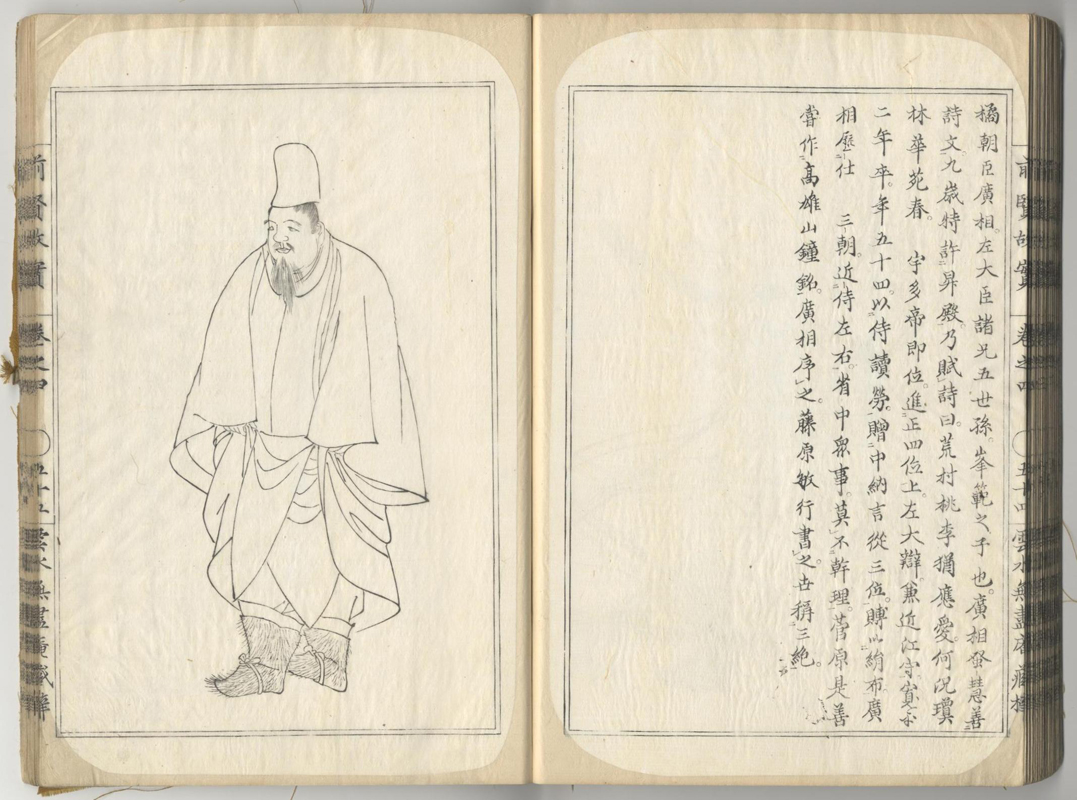 橘朝臣廣相。左大臣諸兄五世孫。峯範之子也。廣相蚤慧善
詩文九歲特許昇殿乃賦詩曰。荒村桃李猶應愛。何況瓊
林華苑春。 宇多帝即位。進正四位上。左大辯。兼近江守。寬平
二年卒。年五十四。以侍讀勞。贈中納言從三位。賻以絹布廣
相歷仕 三朝。近侍左右。省中眾事。莫不幹理。菅原是善
嘗作高雄山鐘銘。廣相序之。藤原敏行書之。世稱三絕。
前賢故實 卷之四 五十四 雲水無盡庵藏
前賢故實 卷之四 五十五 雲水無盡庵藏